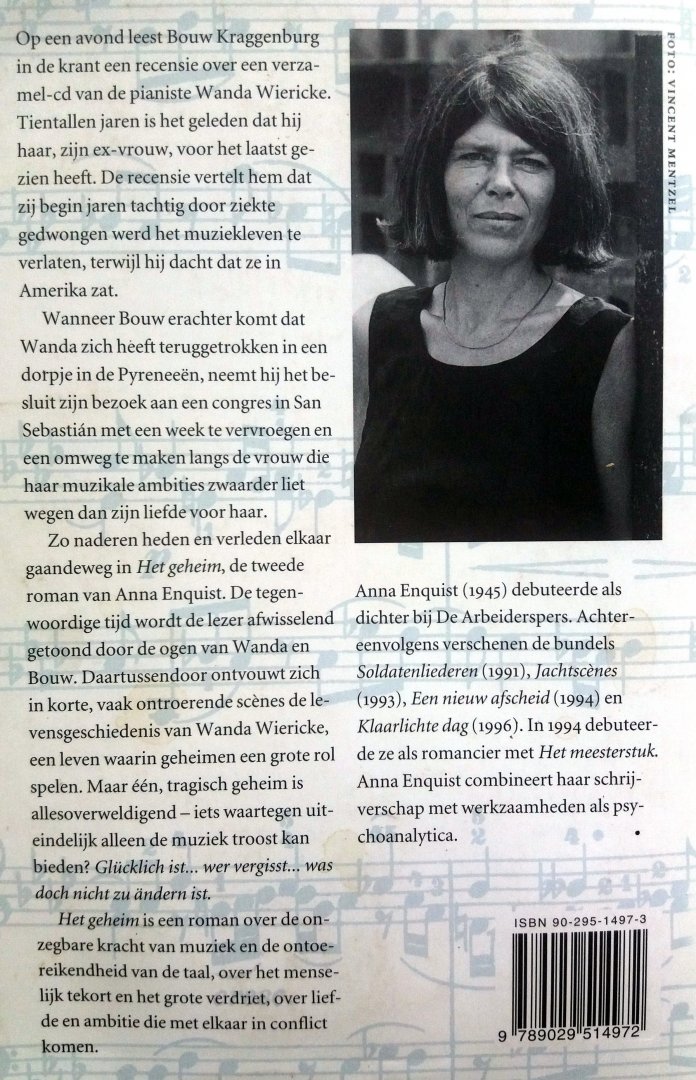 Op een avond leest Bouw Kraggenburg
in de krant een recensie over een verza-
mel-cd van de pianiste Wanda Wiericke.
Tientallen jaren is het geleden dat hij
haar, zijn ex-vrouw, voor het laatst ge-
zien heeft. De recensie vertelt hem dat
zij begin jaren tachtig door ziekte
gedwongen werd het muziekleven te
verlaten, terwijl hij dacht dat ze in
Amerika zat.
Wanneer Bouw erachter komt dat
Wanda zich heeft teruggetrokken in een
dorpje in de Pyreneeën, neemt hij het be-
sluit zijn bezoek aan een congres in San
Sebastián met een week te vervroegen en
een omweg te maken langs de vrouw die
haar muzikale ambities zwaarder liet
wegen dan zijn liefde voor haar.
Zo naderen heden en verleden elkaar
gaandeweg in Het geheim, de tweede
roman van Anna Enquist. De tegen-
woordige tijd wordt de lezer afwisselend
getoond door de ogen van Wanda en
Bouw. Daartussendoor ontvouwt zich
in korte, vaak ontroerende scènes de le-
vensgeschiedenis van Wanda Wiericke,
een leven waarin geheimen een grote rol
spelen. Maar één, tragisch geheim is
allesoverweldigend – iets waartegen uit-
eindelijk alleen de muziek troost kan
bieden? Glücklich ist... wer vergisst... was
doch nicht zu ändern ist.
Het geheim is een roman over de on-
zegbare kracht van muziek en de ontoe-
reikendheid van de taal, over het mense-
lijk tekort en het grote verdriet, over lief-
de en ambitie die met elkaar in conflict
komen.
FOTO: VINCENT MENTZEL
Anna Enquist (1945) debuteerde als
dichter bij De Arbeiderspers. Achter-
eenvolgens verschenen de bundels
Soldatenliederen (1991), Jachtscènes
(1993), Een nieuw afscheid (1994) en
Klaarlichte dag (1996). In 1994 debuteer-
de ze als romancier met Het meesterstuk.
Anna Enquist combineert haar schrij-
verschap met werkzaamheden als psy-
choanalytica.
ISBN 90-295-1497-3
9 789029 514972